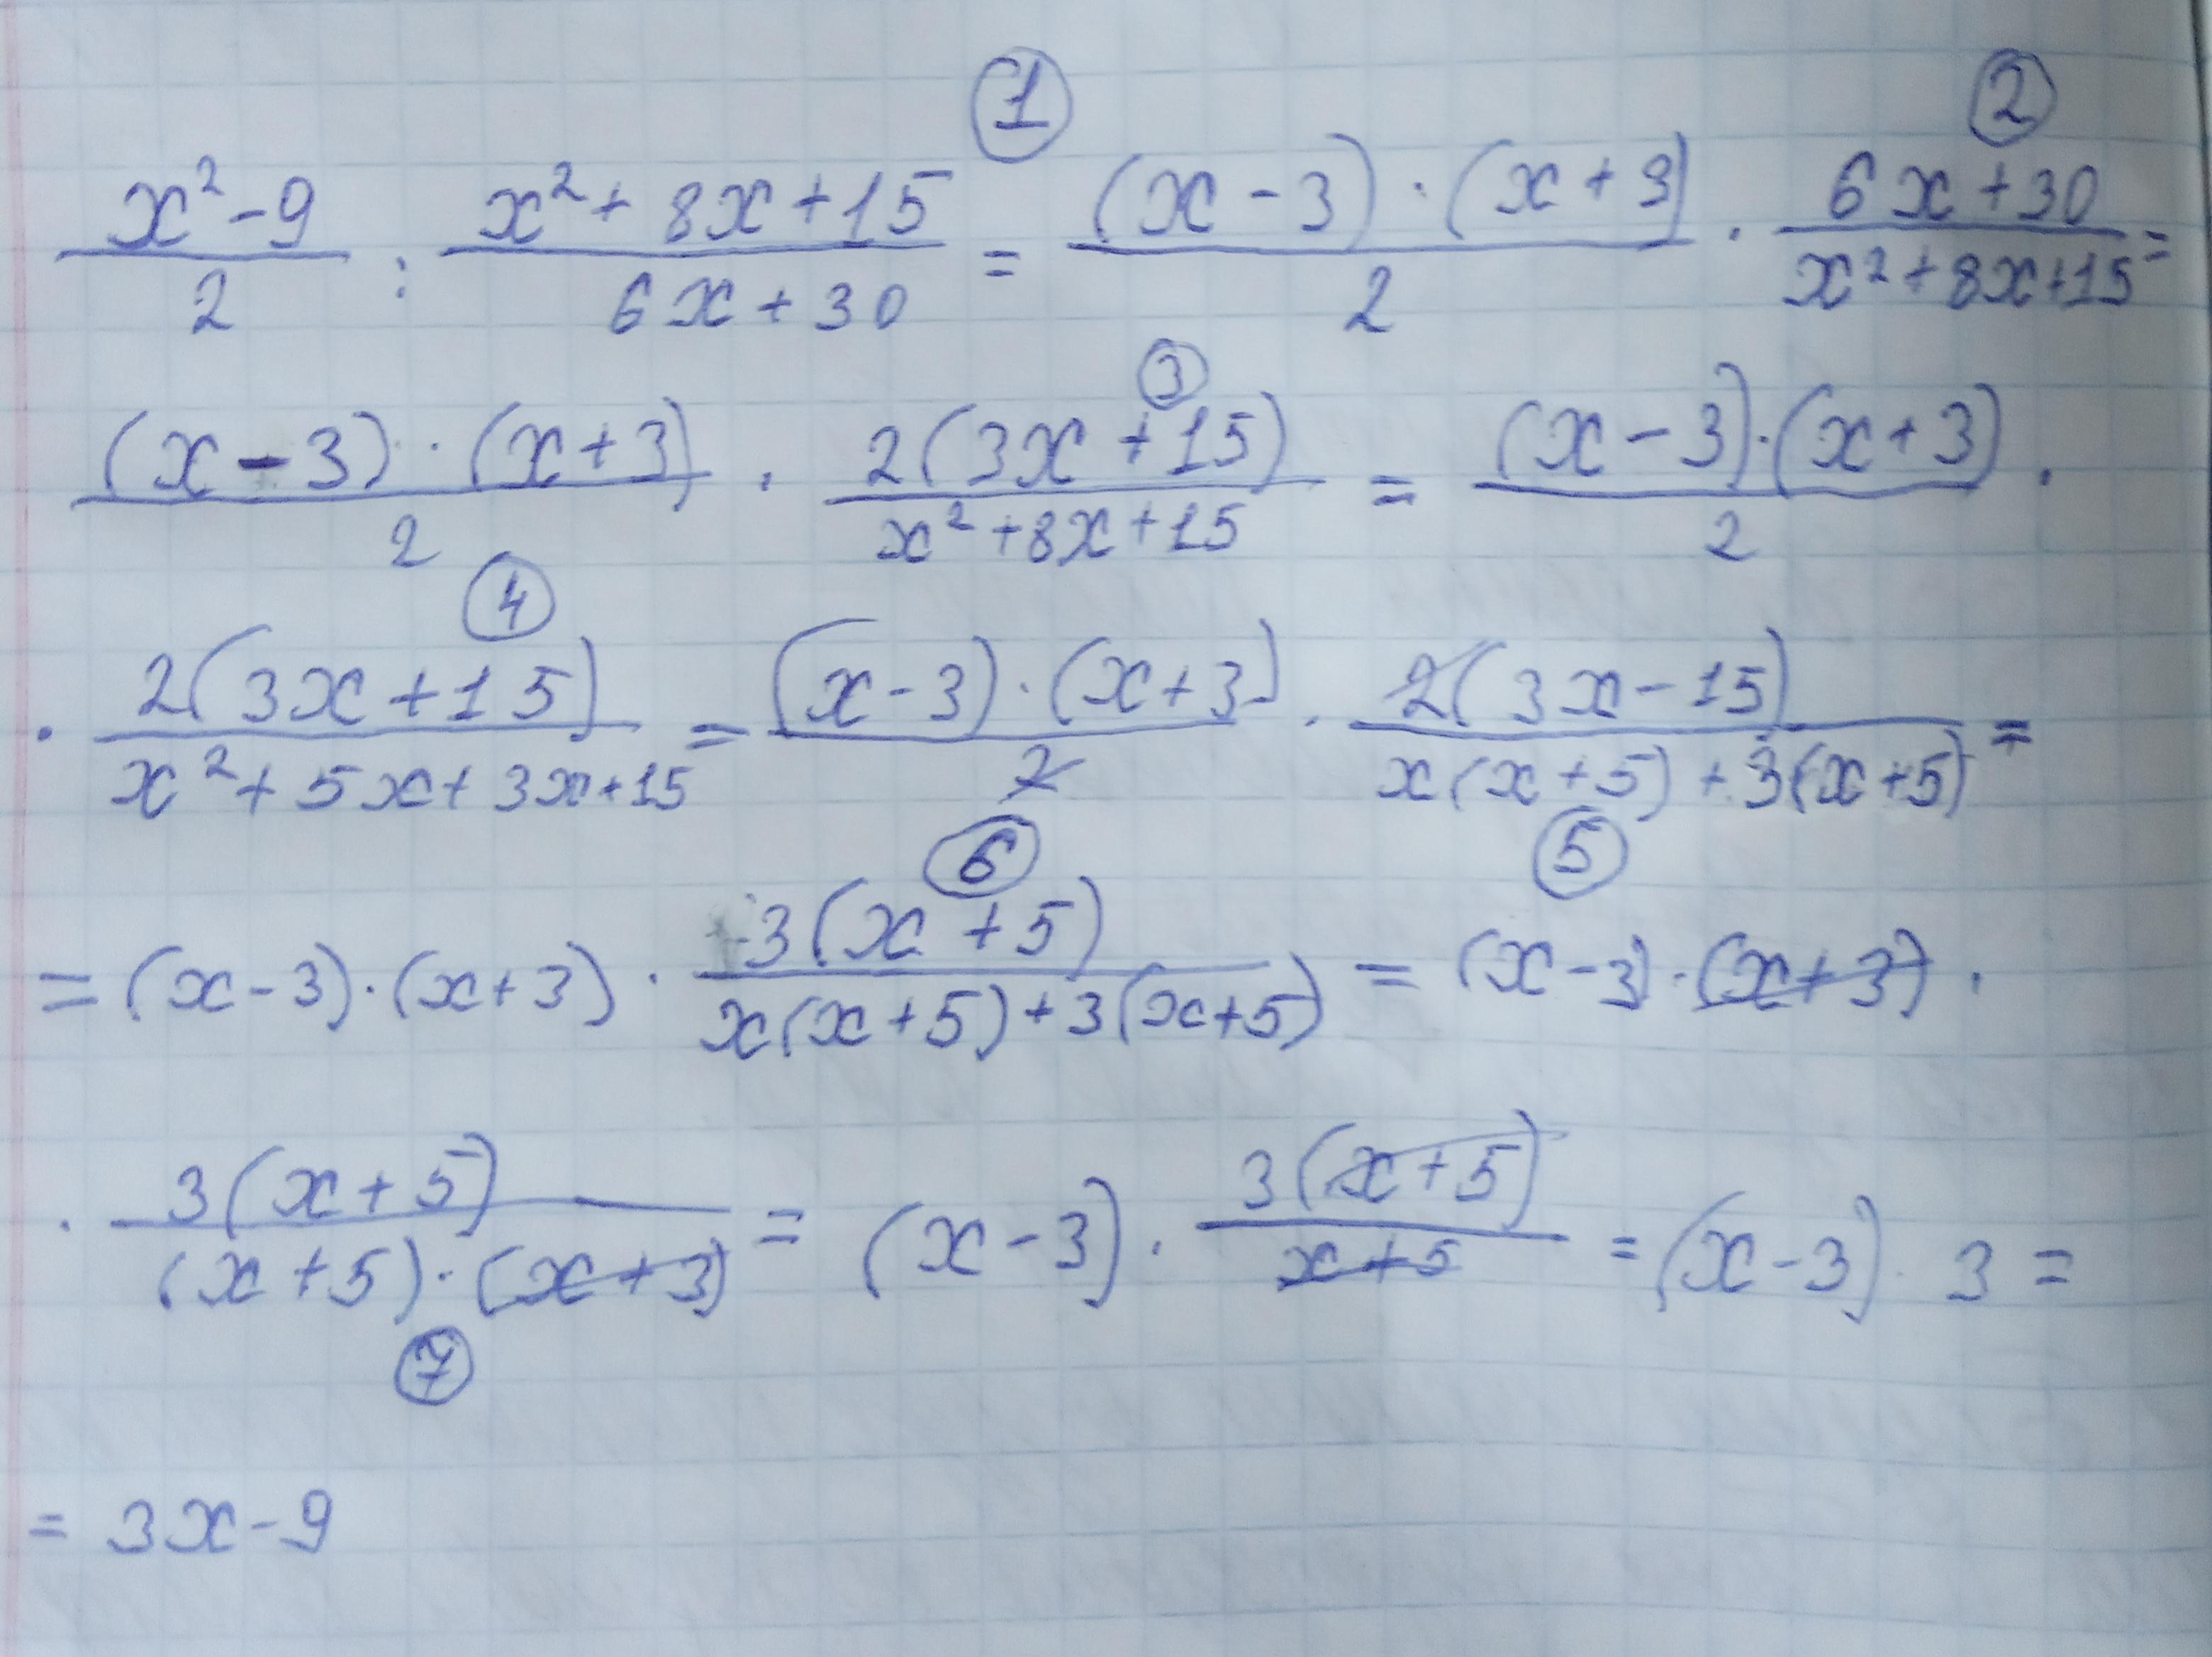 ① ②
(x² - 9)/2 : (x² + 8x + 15)/(6x + 30) = ((x - 3) · (x + 3))/2 · (6x + 30)/(x² + 8x + 15) =
③
((x - 3) · (x + 3))/2 · (2(3x + 15))/(x² + 8x + 15) = ((x - 3) · (x + 3))/2 ·
④
· (2(3x + 15))/(x² + 5x + 3x + 15) = ((x - 3) · (x + 3))/2 · (2(3x - 15))/(x(x + 5) + 3(x + 5)) =
⑥ ⑤
= (x - 3) · (x + 3) · (3(x + 5))/(x(x + 5) + 3(x + 5)) = (x - 3) · (x + 3) ·
· (3(x + 5))/((x + 5) · (x + 3)) = (x - 3) · (3(x + 5))/(x + 5) = (x - 3) · 3 =
⑦
= 3x - 9